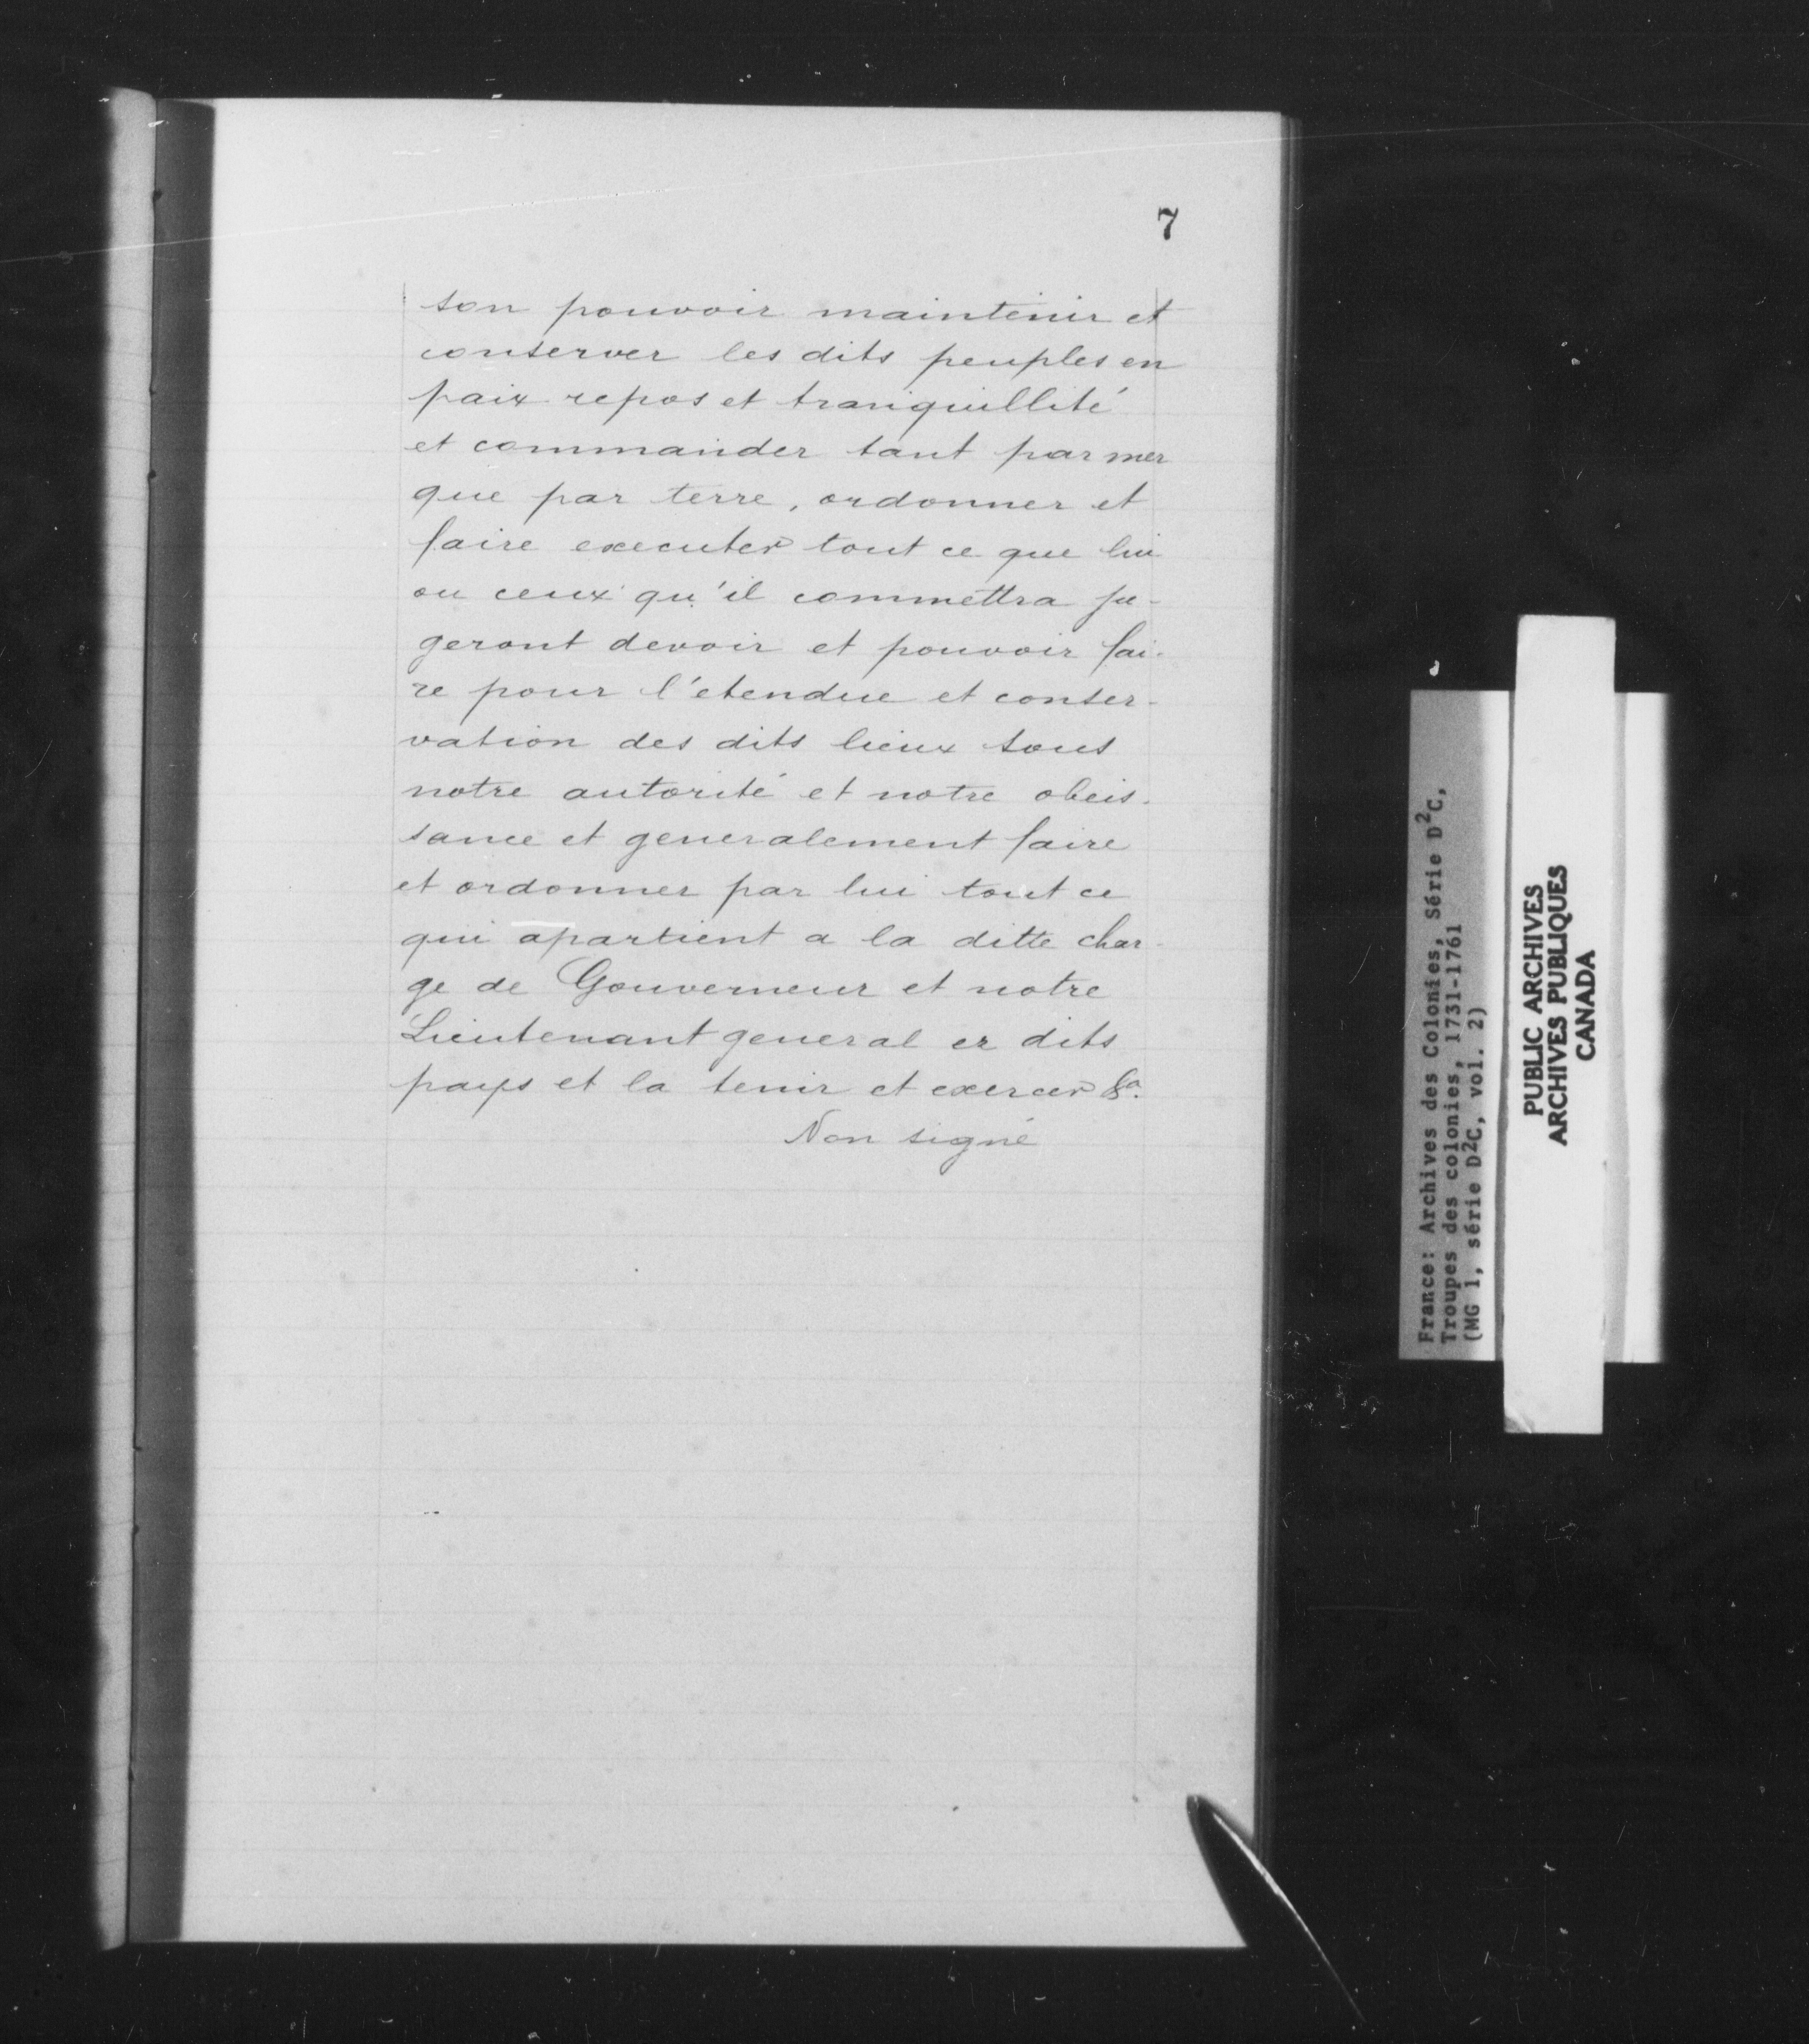 7
son pouvoir maintenir et
conserver les dits peuples en
paix repos et tranquillité
et commander tant par mer
que par terre, ordonner et
faire executer tout ce que lui
ou ceux qu'il commettra ju-
geront devoir et pouvoir fai-
re pour l'etendue et conser-
vation des dits lieux sous
notre autorité et notre obeis-
sance et generalement faire
et ordonner par lui tout ce
qui apartient a la ditte char-
ge de Gouverneur et notre
Lieutenant general er dits
pays et la tenir et exercer &a.
Non signé
France: Archives des Colonies, Série D²C,
Troupes des colonies, 1731-1761
(MG 1, série D²C, vol. 2)
PUBLIC ARCHIVES
ARCHIVES PUBLIQUES
CANADA